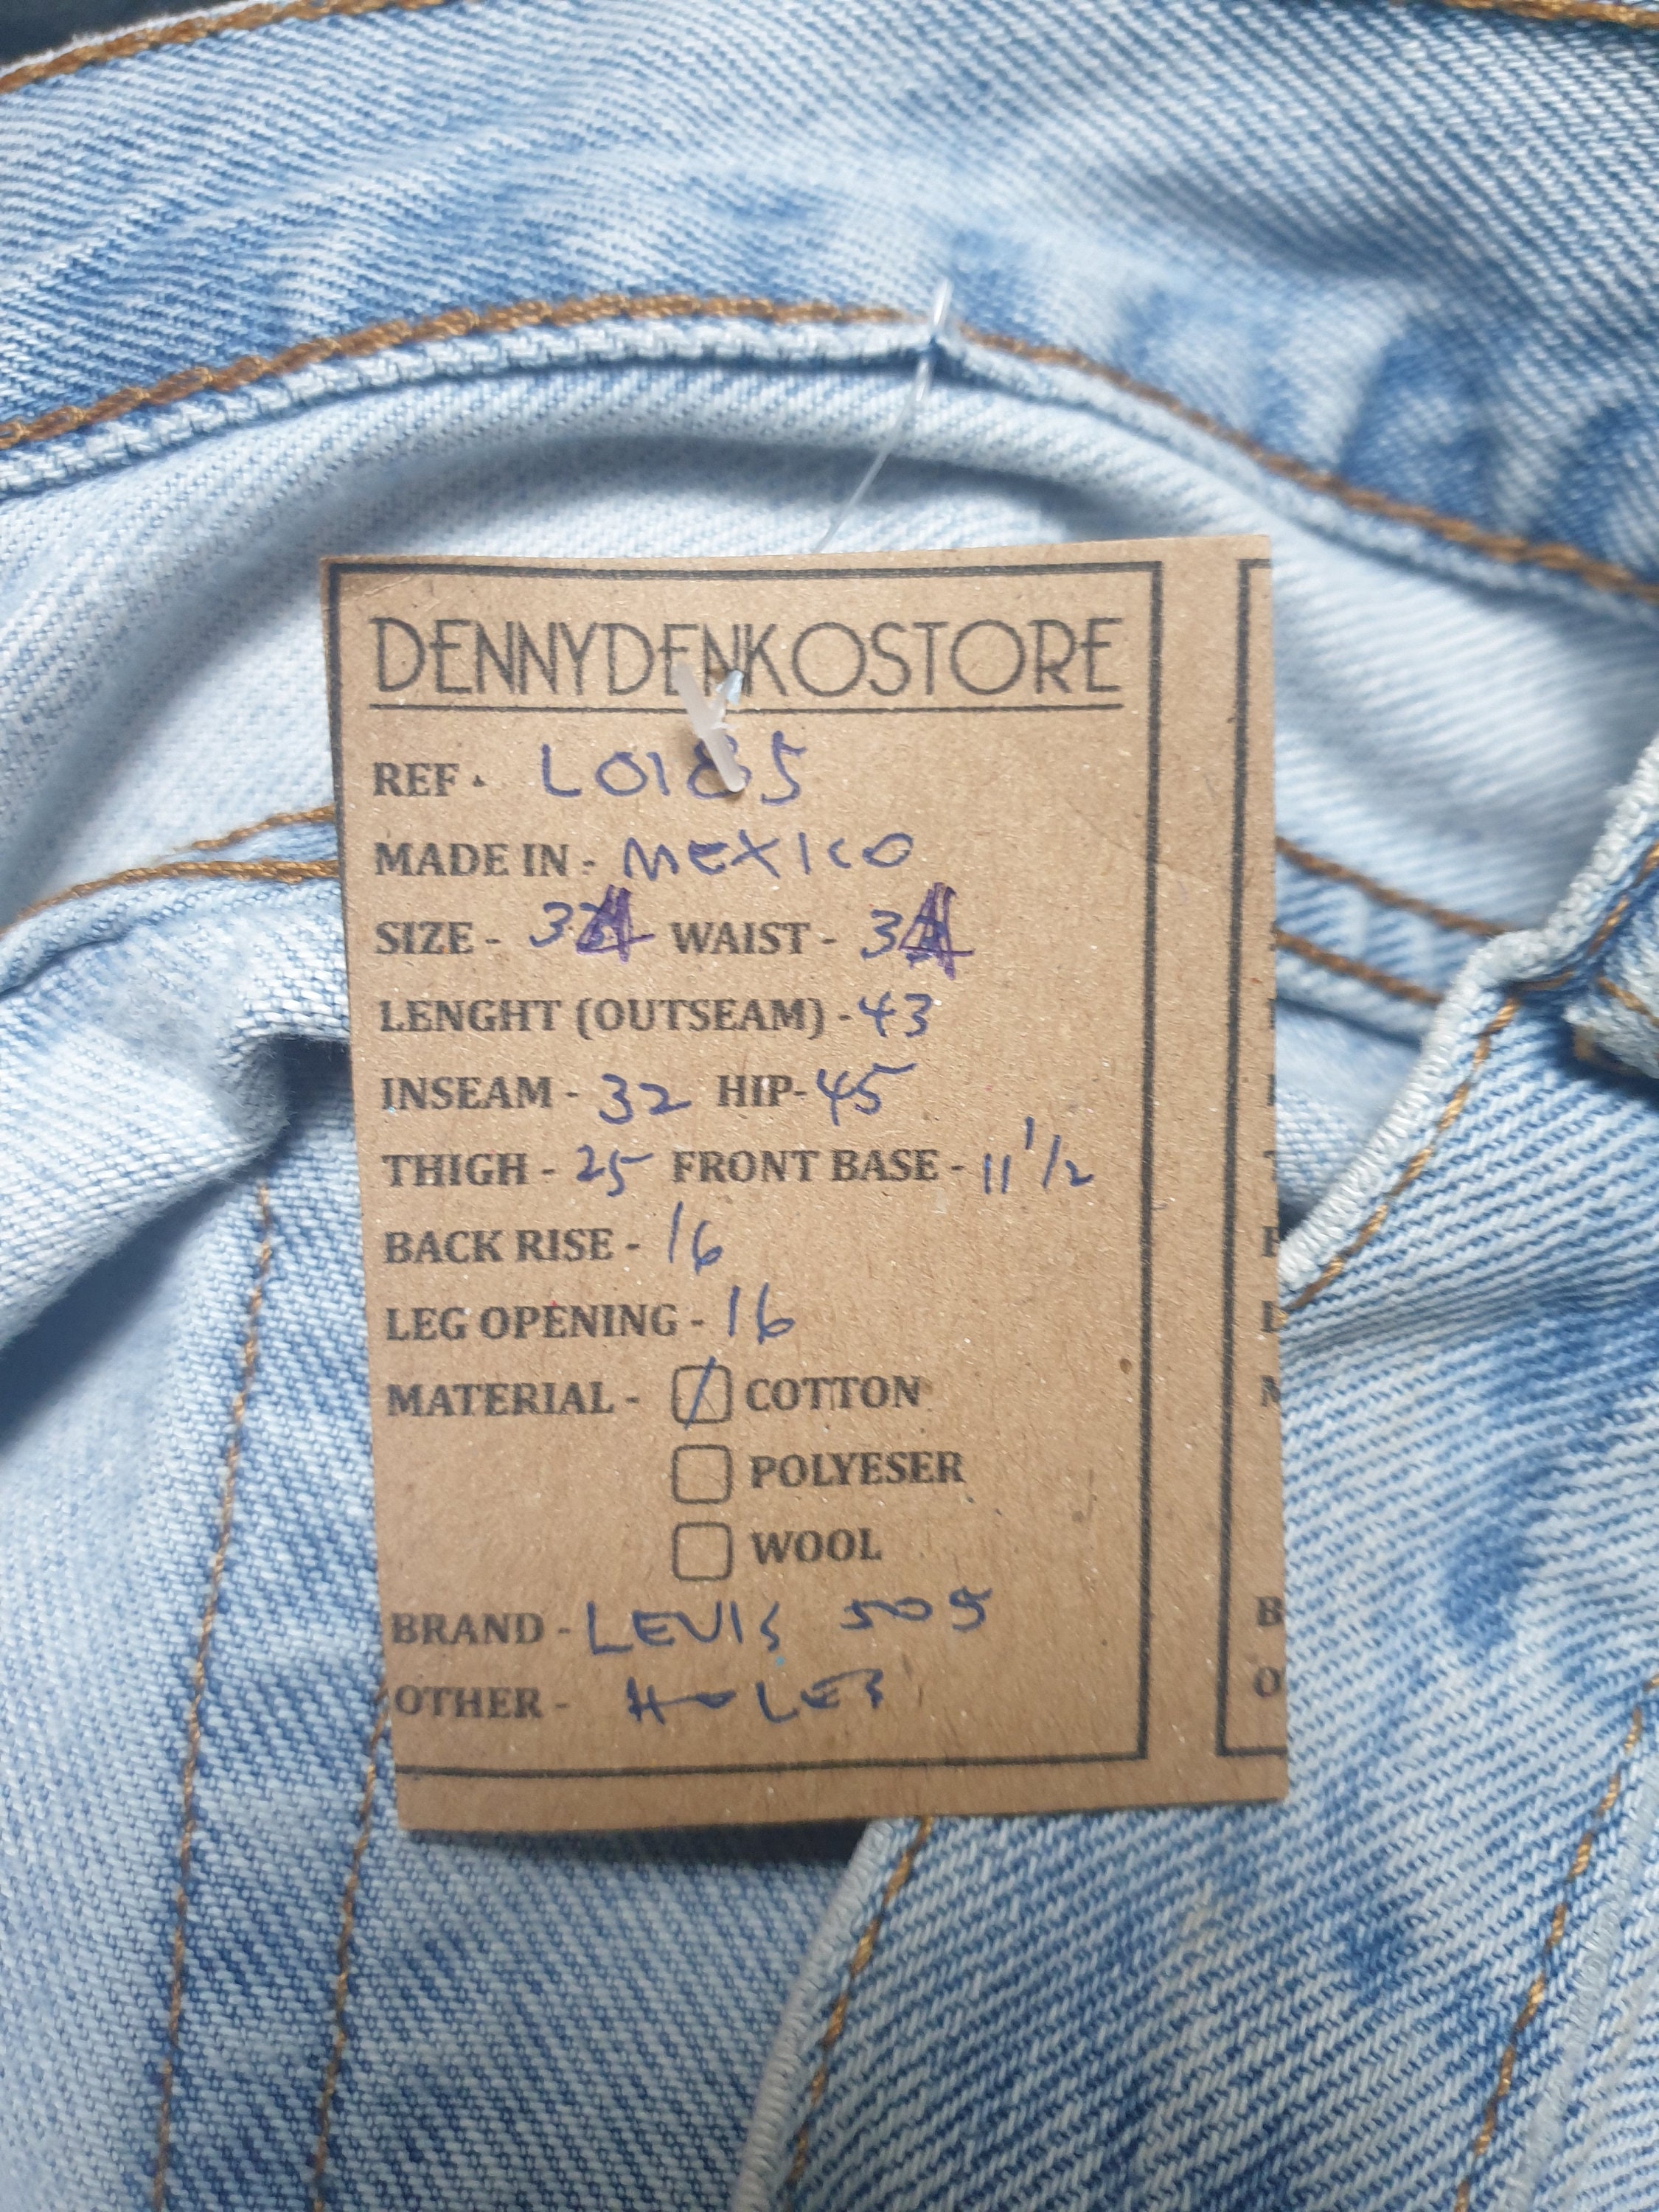 DENNYDENKOSTORE
REF - L0185
MADE IN - MEXICO
SIZE - 34 WAIST - 34
LENGHT (OUTSEAM) - 43
INSEAM - 32 HIP- 45
THIGH - 25 FRONT BASE - 11 1/2
BACK RISE - 16
LEG OPENING - 16
MATERIAL - COTTON
POLYESER
WOOL
BRAND - LEVIS 505
OTHER - HOLES